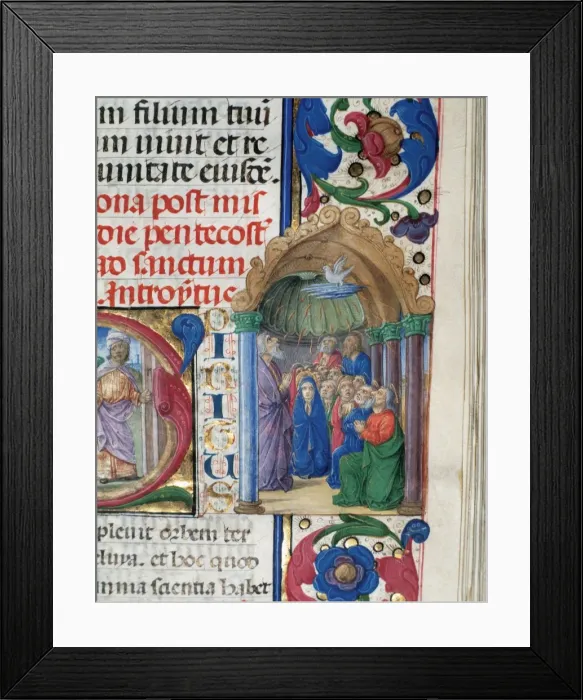 m filium tuū
um uiuit et re
unitate eiusdē.
ona post mis
die pentecost
ad sanctum
.Introytus
S
PIRITUS
pleuit orbem ter
eluya. et hoc quod
mnia scientia habet